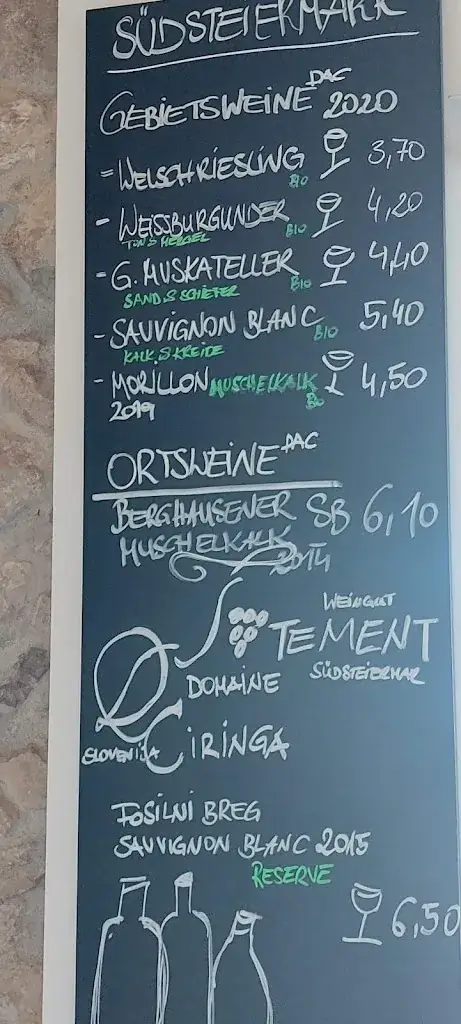 SÜDSTEIERMARK
GEBIETSWEINE DAC 2020
= WELSCHRIESLING BIO 3,70
- WEISSBURGUNDER BIO 4,20
TON & MERGEL
- G. MUSKATELLER BIO 4,40
SAND & SCHIEFER
- SAUVIGNON BLANC BIO 5,40
KALK & KREIDE
- MORILLON MUSCHELKALK BIO 4,50
2019
ORTSWEINE DAC
BERGHAUSENER SB 6,10
MUSCHELKALK
2014
WEINGUT
TEMENT
SÜDSTEIERMAR
DOMAINE
SLOVENIJA CIRINGA
FOSILNI BREG
SAUVIGNON BLANC 2015
RESERVE
6,50